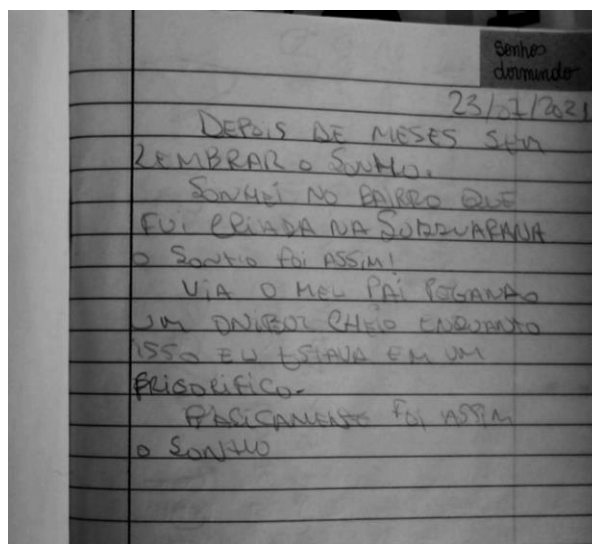 Sonhos
dormindo
23/01/2021
DEPOIS DE MESES SEM
LEMBRAR O SONHO.
SONHEI NO BAIRRO QUE
FUI CRIADA NA SUSSUARANA
O SONHO FOI ASSIM!
VIA O MEU PAI PEGANDO
UM ONIBUS CHEIO ENQUANTO
ISSO EU ESTAVA EM UM
FRIGORIFICO.
BASICAMENTE FOI ASSIM
O SONHO